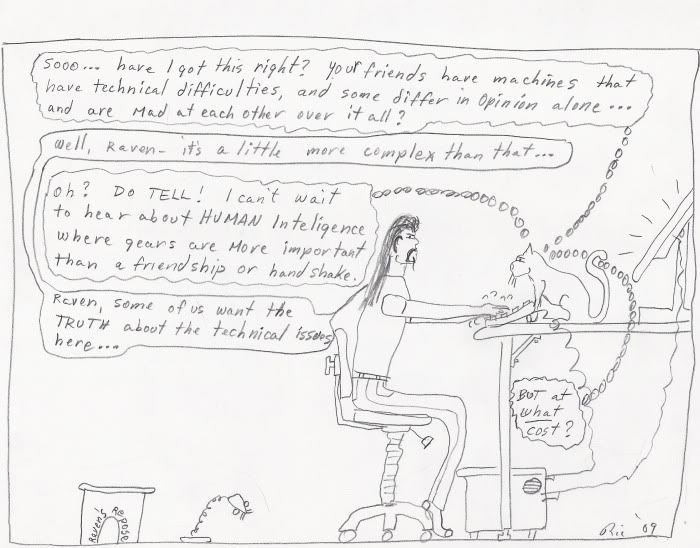 Sooo... have I got this right? Your friends have machines that
have technical difficulties, and some differ in Opinion alone...
and are Mad at each other over it all?
Well, Raven- it's a little more complex than that...
Oh? DO TELL! I can't wait
to hear about HUMAN Inteligence
where gears are More important
than a friendship or handshake.
Raven, some of us want the
TRUTH about the technical issues
here...
BUT at
what
cost?
Raven's
Repose
Ric '09